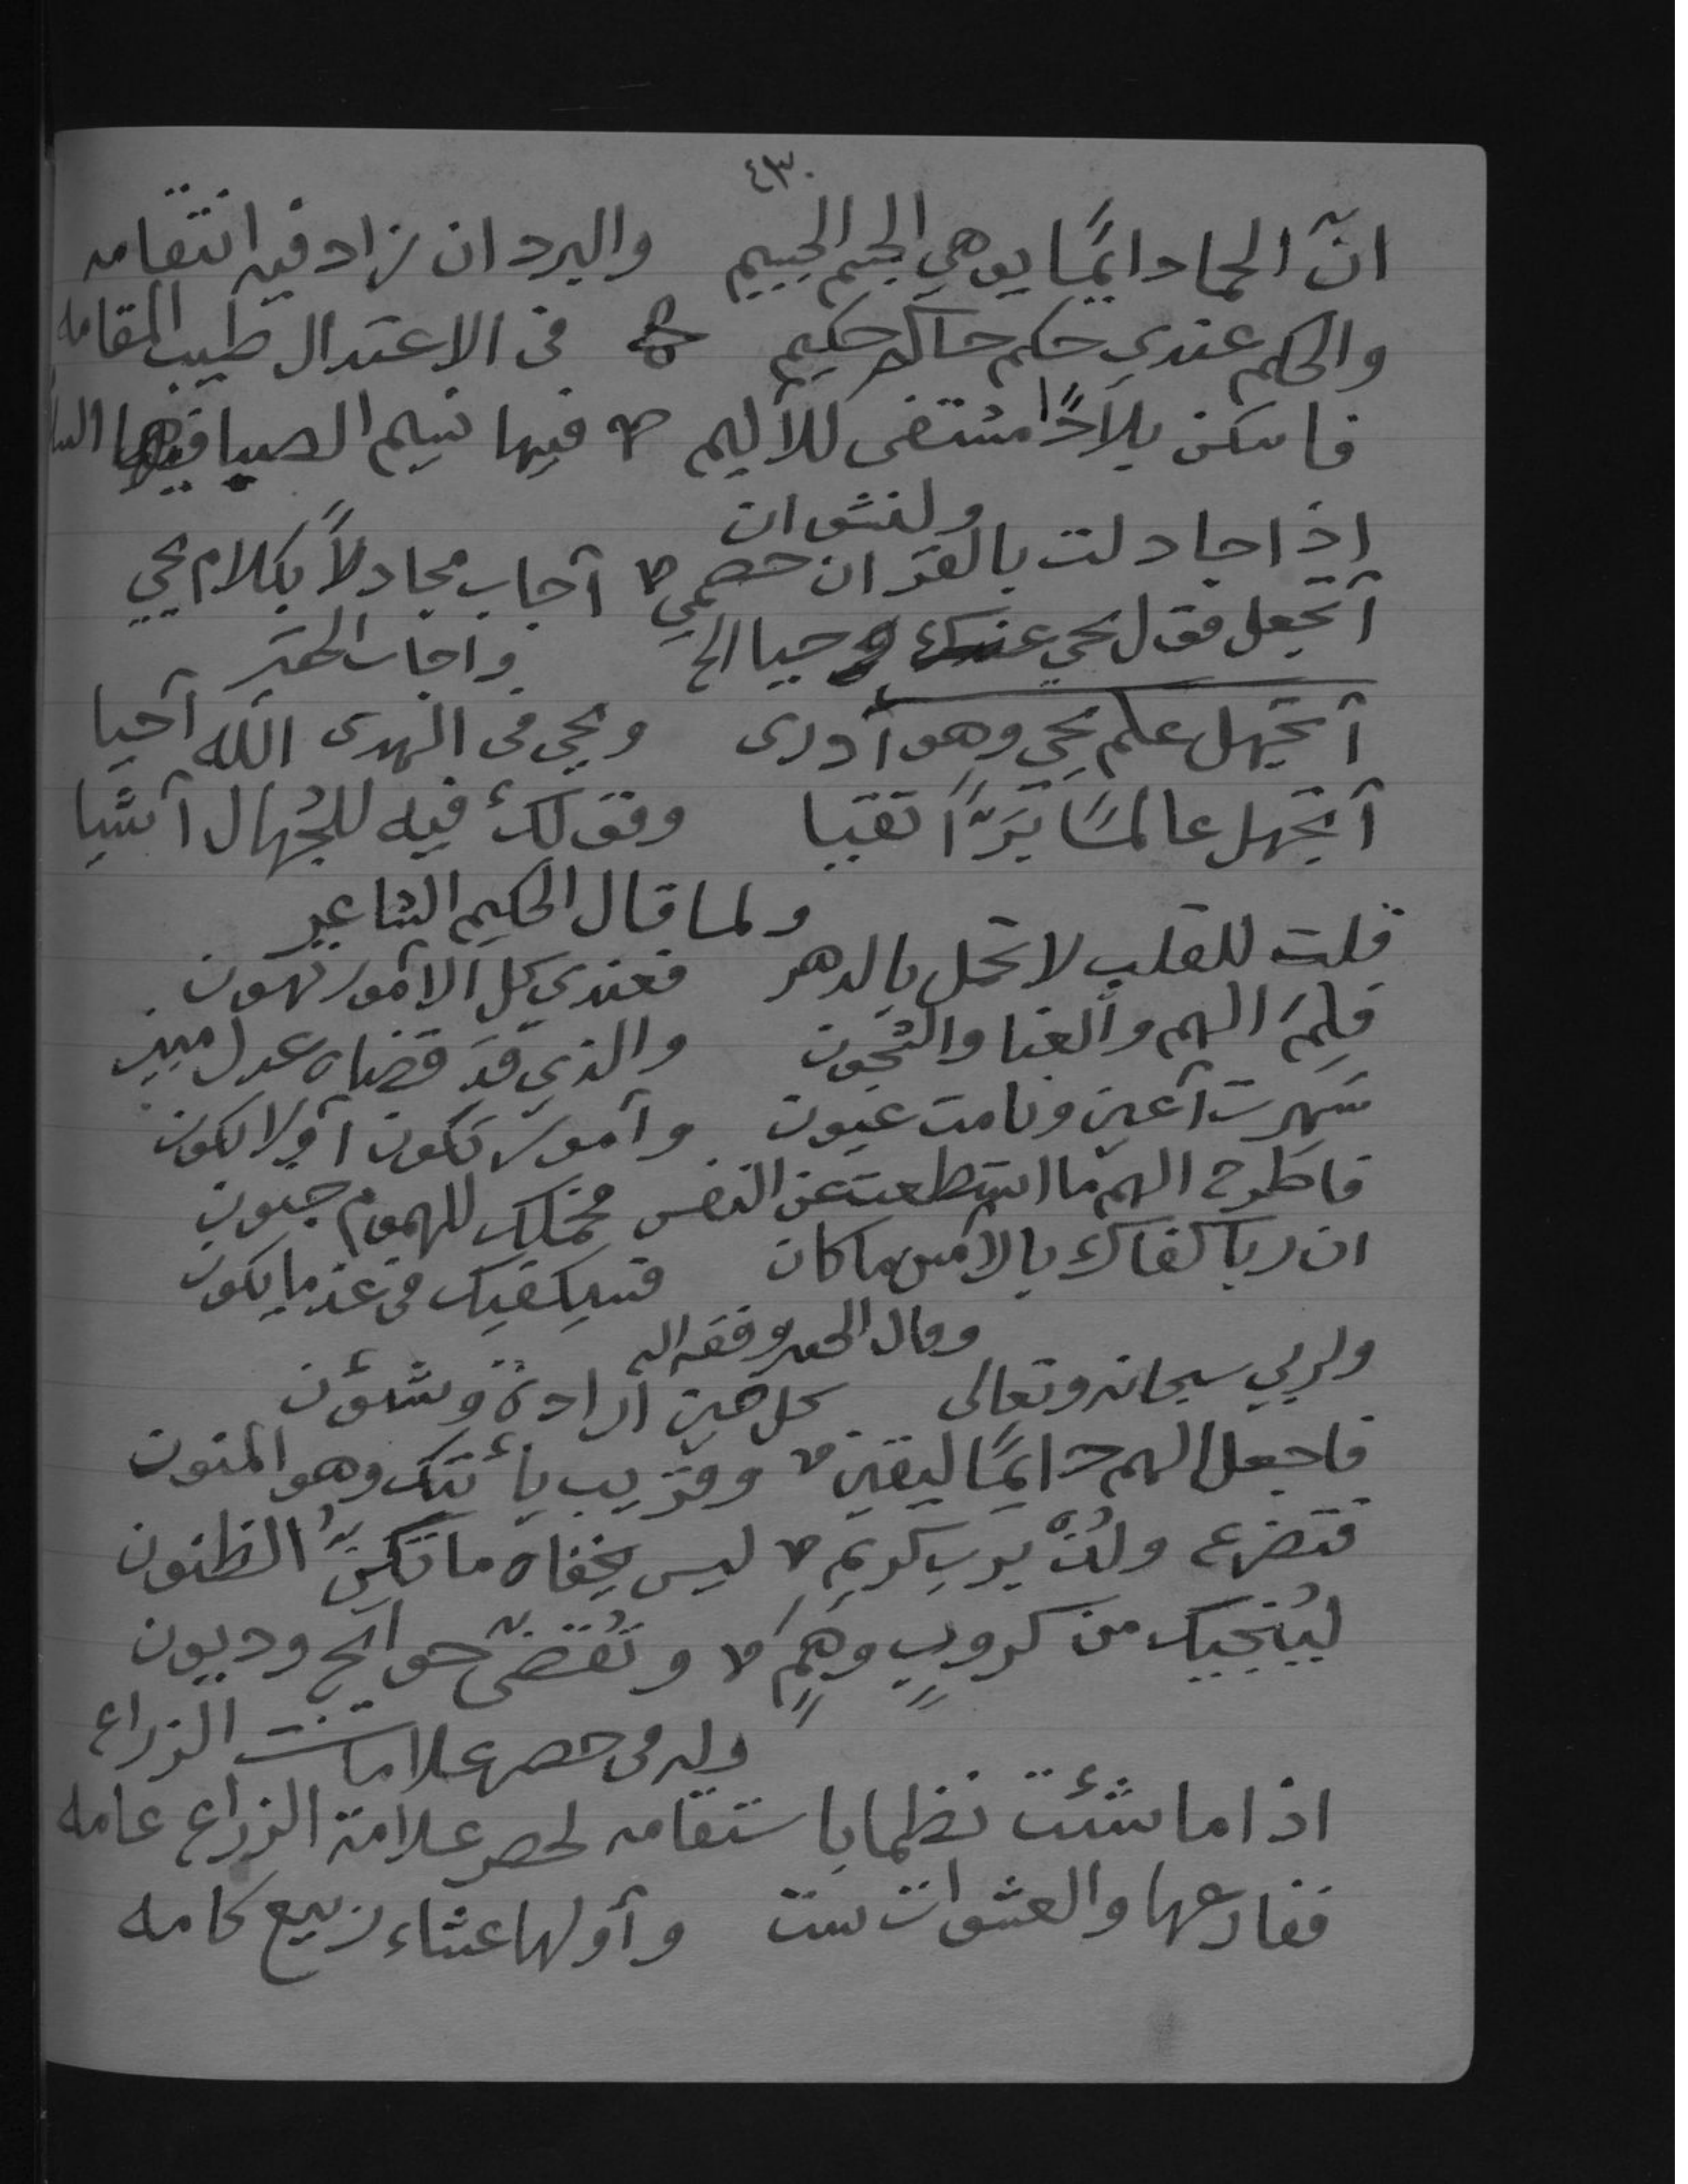 ٤٣٠
انّ الحما دايمًا يوهي الجسم الجسيم والبرد ان زاد فيه انتقامه
والحكم عندي حكم حاكم حكيم في الاعتدال طيب المقامه
فاسكن بلادًا مشتفى للأليم فيها نسيم الصبا فيها
ولنشوان
إذا جادلت بالقرآن خصمي أجاب مجادلاً بكلام يحيى
أتجعل فول يحي عنك وحيا الخ واجاب الحقير
أتجهل علم يحيي وهو أدرى ويحي في الهدى الله أحيا
أتجهل عالمًا برًّا تقيا وقولك فيه للجُهال أشيا
ولما قال الحكيم الشاعر
قلت للقلب لا تحمل بالدهر فعندي كل الأمور تهون
فلِمَ الهم والعنا والشجون والذي قد قضاه عدل مبين
سهرت أعين ونامت عيون وأمور تكون أو لا تكون
فاطرح الهم ما استطعت عن النفس فحملك للهموم جنون
ان ربا كفاك بالأمس ما كان فسيكفيك في غد ما يكون
وقال الحقير وفقه الله
ولربي سبحانه وتعالى كل حين أرادة وشئون
فاجعل الهم دايمًا ليقين وقريب يأتيك وهو المنون
فتضرع ولُذ بربِ كريمِ ليس يخفاه ما تكنُّ الظنون
ليُنجيك من كروبٍ وهمٍ وتُقضى حوائج وديون
وله في حصر علامات الزراع
اذا ما شئت نظما باستقامه لحصر علامة الزراع عامه
فقارعها والعشوات ست وأولها عشاء ربيع كامه